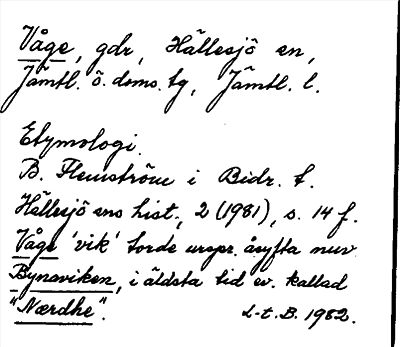 Våge, gdr, Hällesjö sn,
Jämtl. ö. doms. tg, Jämtl. l.
Etymologi.
B. Flemström i Bidr. t.
Hällesjö sns hist., 2 (1981), s. 14 f.
Våge 'vik' torde urspr. åsyfta nuv.
Bynaviken, i äldsta tid ev. kallad
"Nærdhe". L-t. B. 1982.